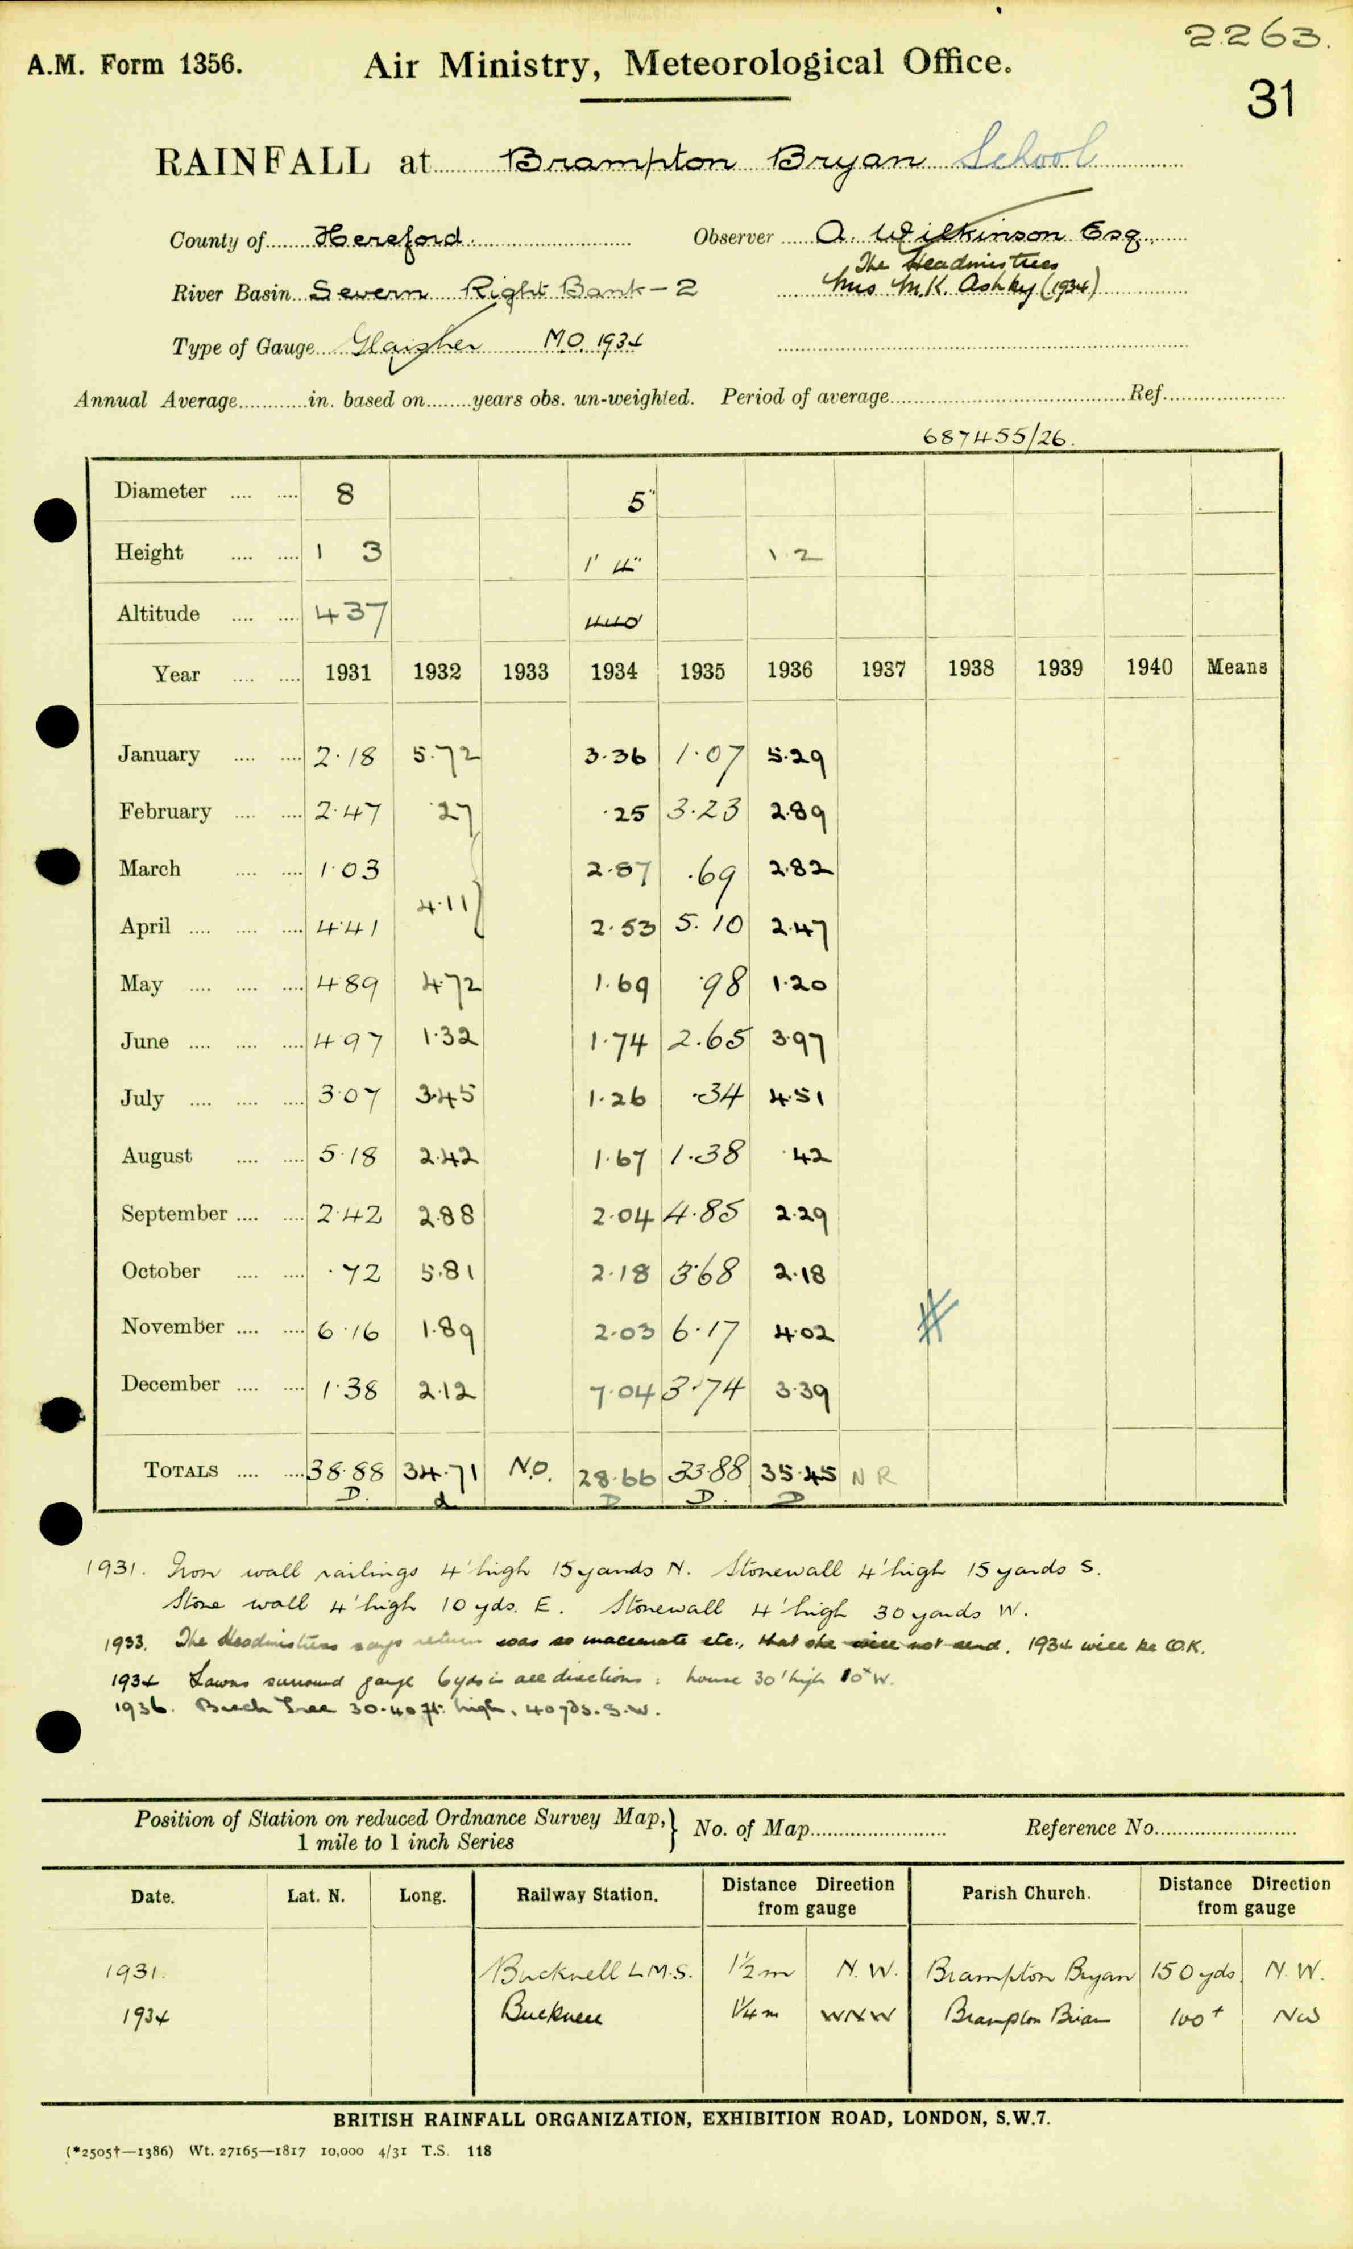 2263.
A.M. Form 1356. Air Ministry, Meteorological Office.
31
RAINFALL at Brampton Bryan School
County of Hereford. Observer A. Wilkinson Esq.
The Headmistress
River Basin Severn Right Bank - 2 Miss M.K. Ashby (1934)
Type of Gauge Glaisher M.O. 1934
Annual Average............in. based on........years obs. un-weighted. Period of average............Ref............
687455/26.
Diameter .... .... 8 5"
Height .... .... 1 3 1' 4" 1 2
Altitude .... .... 437 440
Year .... .... 1931 1932 1933 1934 1935 1936 1937 1938 1939 1940 Means
January .... .... 2.18 5.72 3.36 1.07 5.29
February .... .... 2.47 .27 .25 3.23 2.89
March .... .... 1.03 2.87 .69 2.82
4.11}
April .... .... .... 4.41 2.53 5.10 2.47
May .... .... .... 4.89 4.72 1.69 .98 1.20
June .... .... .... 4.97 1.32 1.74 2.65 3.97
July .... .... .... 3.07 3.45 1.26 .34 4.51
August .... .... 5.18 2.42 1.67 1.38 .42
September .... .... 2.42 2.88 2.04 4.85 2.29
October .... .... .72 5.81 2.18 3.68 2.18
November .... .... 6.16 1.89 2.03 6.17 4.02
December .... .... 1.38 2.12 7.04 3.74 3.39
TOTALS .... .... 38.88 34.71 N.O. 28.66 33.88 35.45 N R
D. d D D. D
1931. Iron wall railings 4' high 15 yards N. Stonewall 4' high 15 yards S.
Stone wall 4' high 10 yds. E. Stonewall 4' high 30 yards W.
1933. The Headmistress says return was so inaccurate etc., that she will not send. 1934 will be O.K.
1934 Lawns surround gauge 6 yds in all directions: house 30' high 10x W.
1936. Beech Tree 30-40 ft. high, 40 yds. S.W.
Position of Station on reduced Ordnance Survey Map,} No. of Map............ Reference No............
1 mile to 1 inch Series
Date. Lat. N. Long. Railway Station. Distance from gauge Direction Parish Church. Distance from gauge Direction
1931. Bucknell L.M.S. 1½ m N.W. Brampton Bryan 150 yds N.W.
1934 Bucknell 1¼ m WNW Brampton Brian 100 + NW
BRITISH RAINFALL ORGANIZATION, EXHIBITION ROAD, LONDON, S.W.7.
(*2505†—1386) Wt. 27165—1817 10,000 4/31 T.S. 118